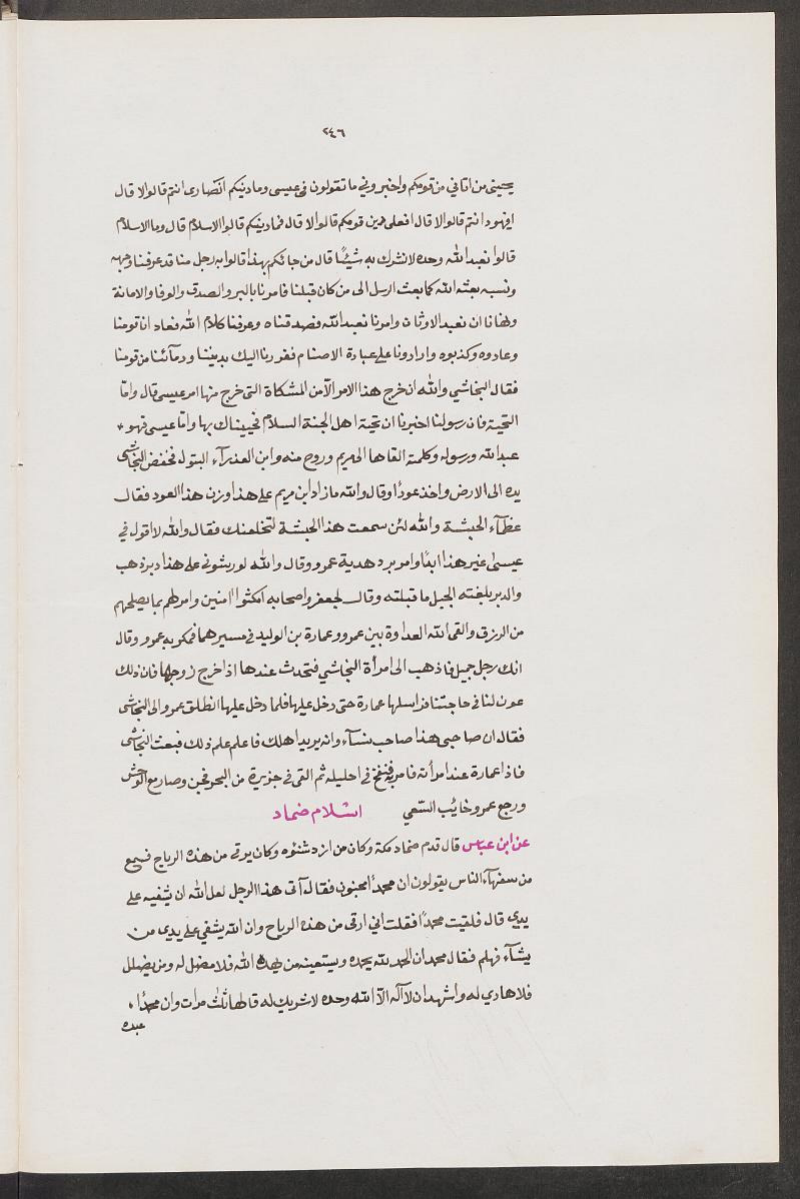 ٢٤٦
يحيينى من اتاني من قومكم واخبروني ما تقولون فى عيسى وما دينكم انصارى انتم قالوا لا قال
افيهود انتم قالوا لا قال افعلى دين قومكم قالوا لا قال فما دينكم قالوا الاسلام قال وما الاسلام
قالوا نعبد الله وحده لا نشرك به شيئًا قال من جائكم بهذا قالوا به رجل منا قد عرفنا وجهه
ونسبه بعثه الله كما بعث الرسل الى من كان قبلنا فامرنا بالبر والصدق والوفا والامانة
ونهانا ان نعبد الاوثان وامرنا نعبد الله فصدقناه وعرفنا كلام الله فعادانا قومنا
وعادوه وكذبوه وارادونا على عبادة الاصنام ففررنا اليك بديننا ودمآئنا من قومنا
فقال النجاشي والله ان خرج هذا الامر الآ من المشكاة التى خرج منها امر عيسى قال وامّا
التحية فان رسولنا اخبرنا ان تحية اهل الجنة السلام فحييناك بها وامّا عيسى فهو
عبد الله ورسوله وكلمته القاها الى مريم وروح منه وابن العذرآء البتول فخفض النجاشى
يده الى الارض واخذ عودًا وقال والله ما زاد ابن مريم على هذا وزن هذا العود فقال
عظمآء الحبشة والله لئن سمعت هذا الحبشة لتخلعنك فقال والله لا اقول في
عيسى غير هذا ابدًا وامر برد هدية عمرو وقال والله لو رشونى على هذا دبر ذهب
والدبر بلغته الجبل ما قبلته وقال لجعفر واصحابه امكثوا امنين وامر لهم بما يصلحهم
من الرزق والقى الله العداوة بين عمرو وعمارة بن الوليد فى مسيرهما فمكر به عمرو وقال
انك رجل جميل فاذهب الى امرأة النجاشي فتحدث عندها اذا خرج زوجها فان ذلك
عون لنا فى حاجتنا فراسلها عمارة حتى دخل عليها فلما دخل عليها انطلق عمرو الى النجاشى
فقال ان صاحبى هذا صاحب نسآء وانه يريد اهلك فاعلم علم ذلك فبعث النجاشى
فاذا عمارة عند امرأته فامر فنفخ فى احليله ثم القى فى جزيرة من البحر فجن وصار مع الوحش
ورجع عمرو خايب السعي اسلام ضماد
عن ابن عباس قال قدم ضماد مكة وكان من ازد شنوه وكان يرقى من هذه الرياح فسمع
من سفهآء الناس يقولون ان محمدًا مجنون فقال آتى هذا الرجل لعل الله ان يشفيه على
يدي قال فلقيت محمدًا فقلت اني ارقى من هذه الرياح وان الله يشفي على يدى من
يشآء فهلم فقال محمد ان الحمد لله نحمده ونستعينه من يهده الله فلا مضل له ومن يضلل
فلا هادي له واشهد ان لا آله الآ الله وحده لا شريك له قالها ثلث مرات وان محمدًا
عبده